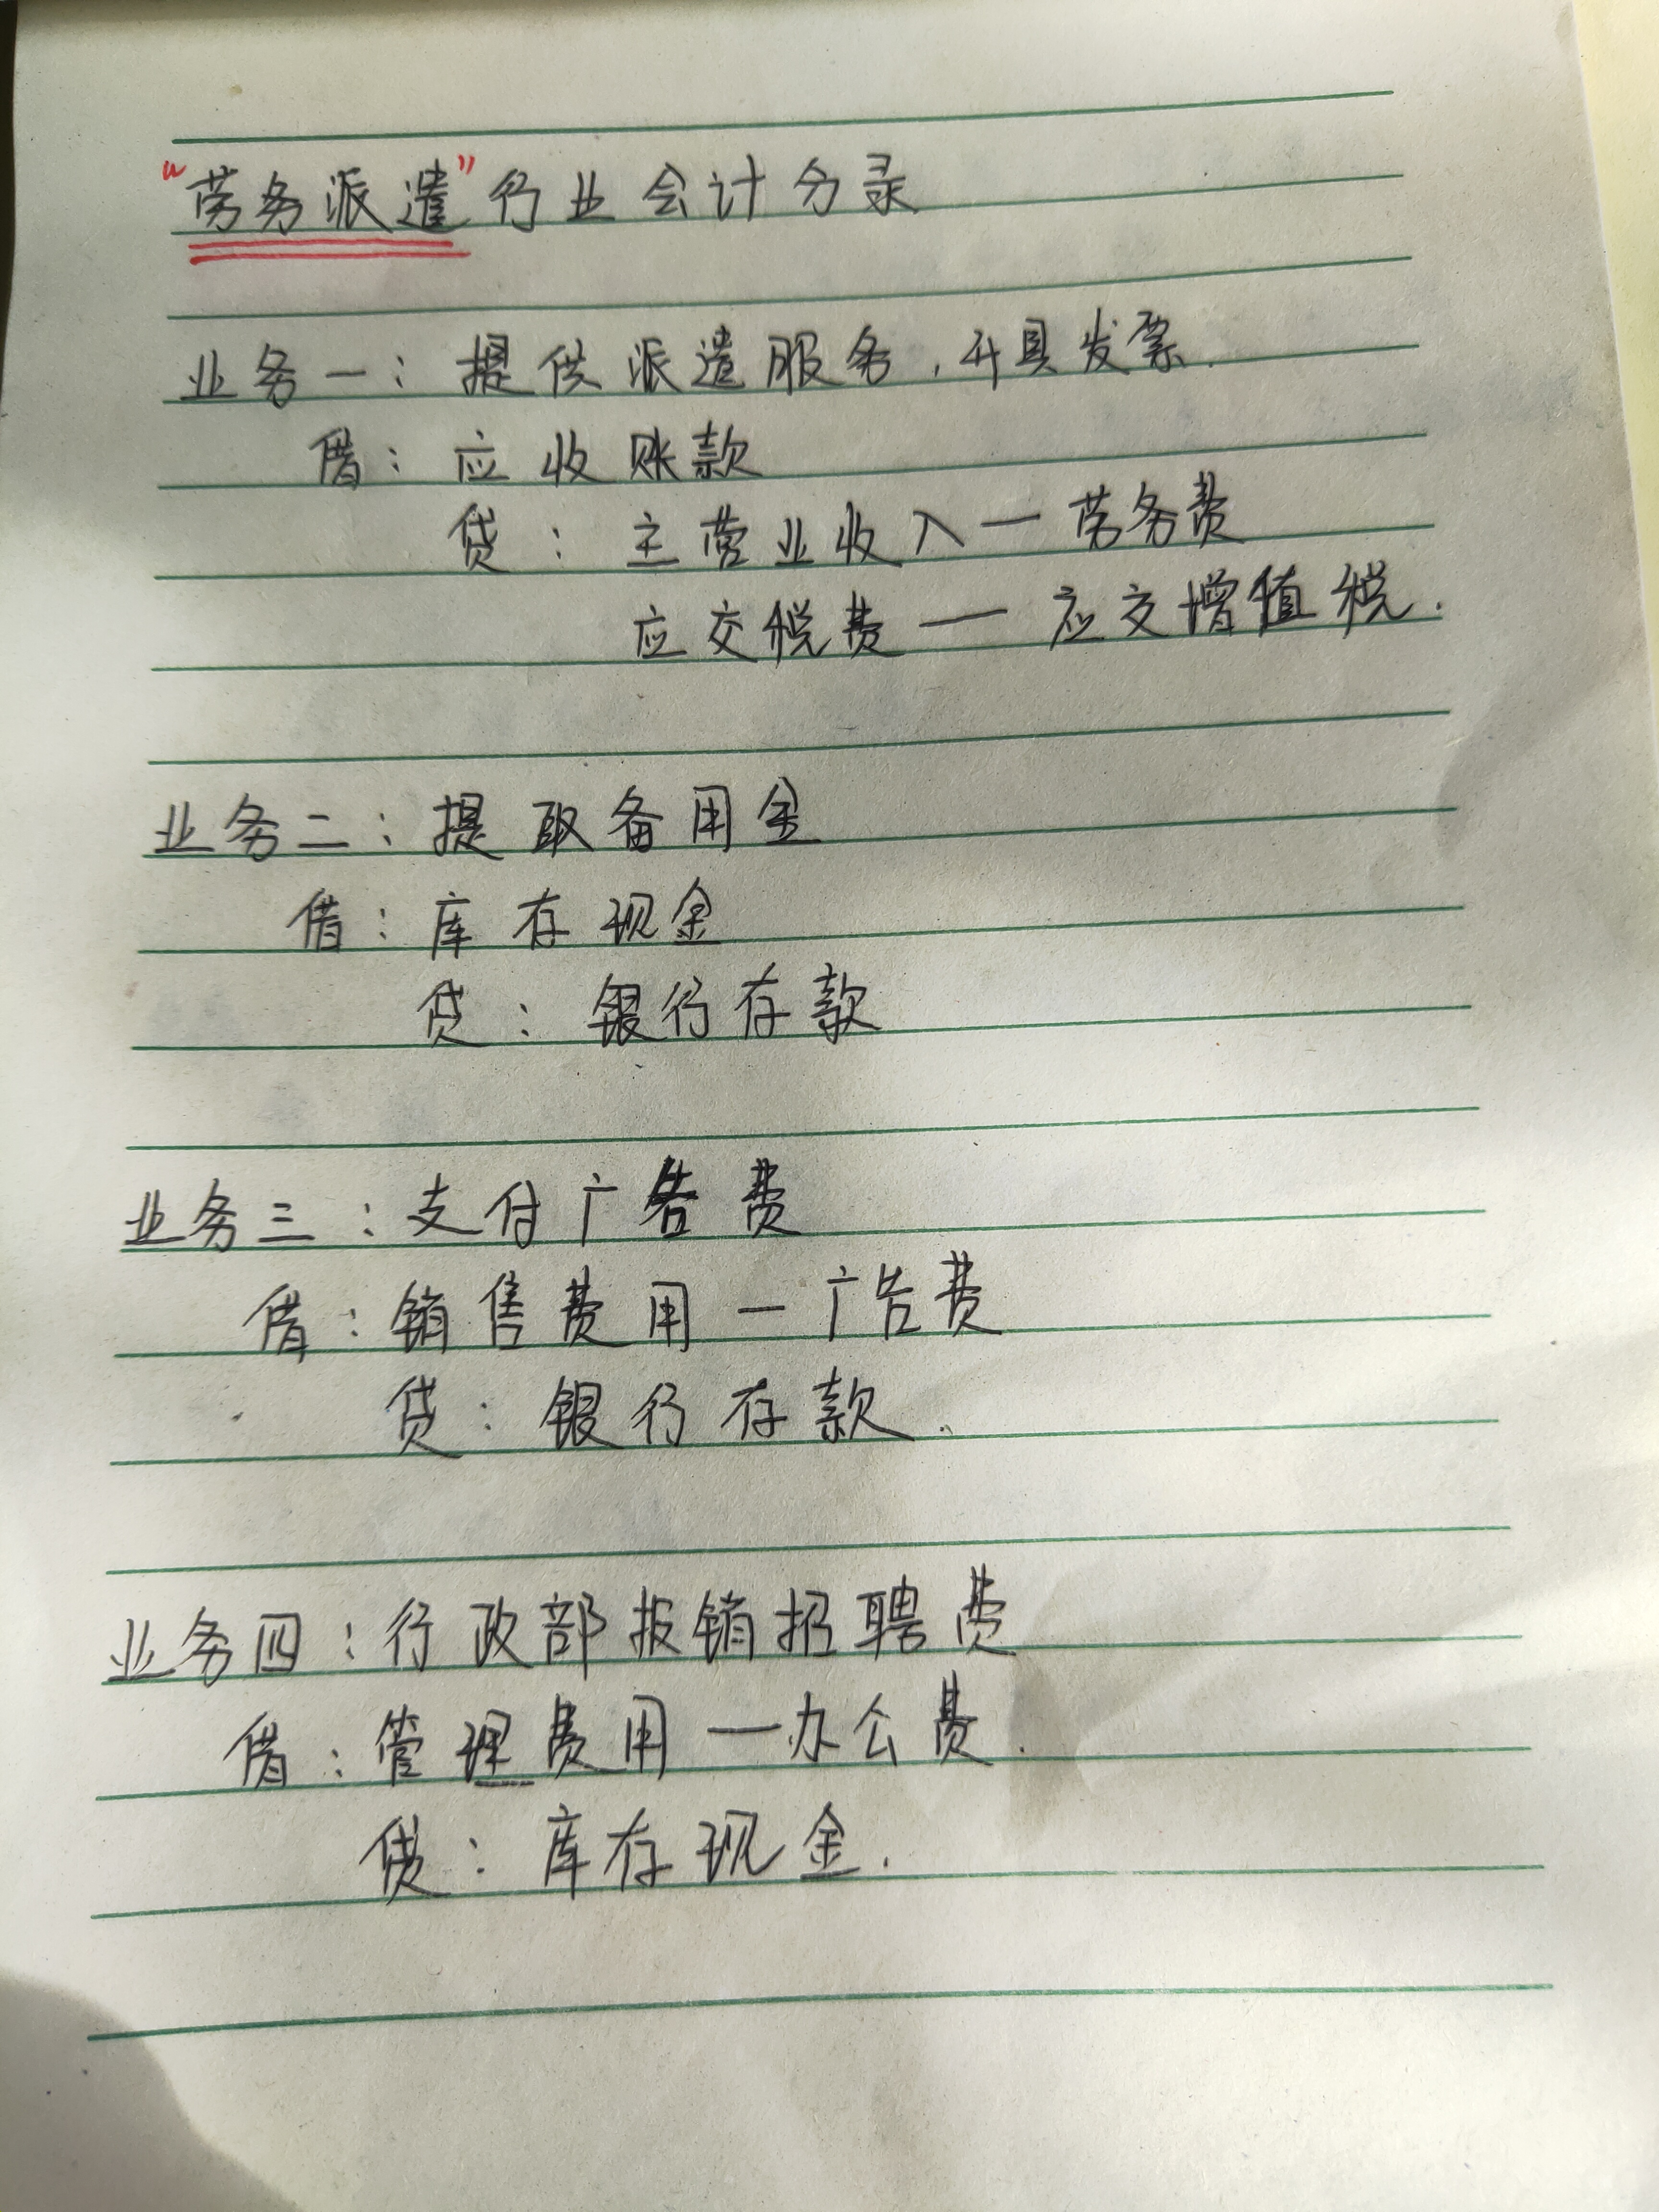 “劳务派遣”行业会计分录
业务一：提供派遣服务，开具发票.
借：应收账款
贷：主营业收入一劳务费
应交税费一应交增值税.
业务二：提取备用金
借：库存现金
贷：银行存款
业务三：支付广告费
借：销售费用一广告费
贷：银行存款.
业务四：行政部报销招聘费
借：管理费用一办公费.
贷：库存现金.